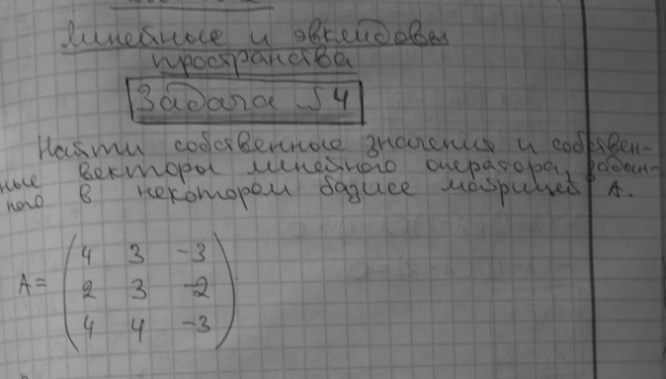 Линейные и эвклидовы
пространства
Задача №4
Найти собственные значения и собствен-
ные векторы линейного оператора, задан-
ного в некотором базисе матрицей А.
4 3 -3
A = 2 3 -2
4 4 -3